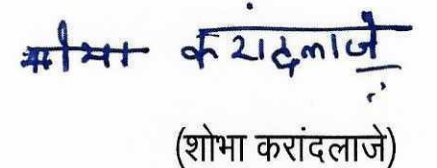 शोभा करांदलाजे
(शोभा करांदलाजे)